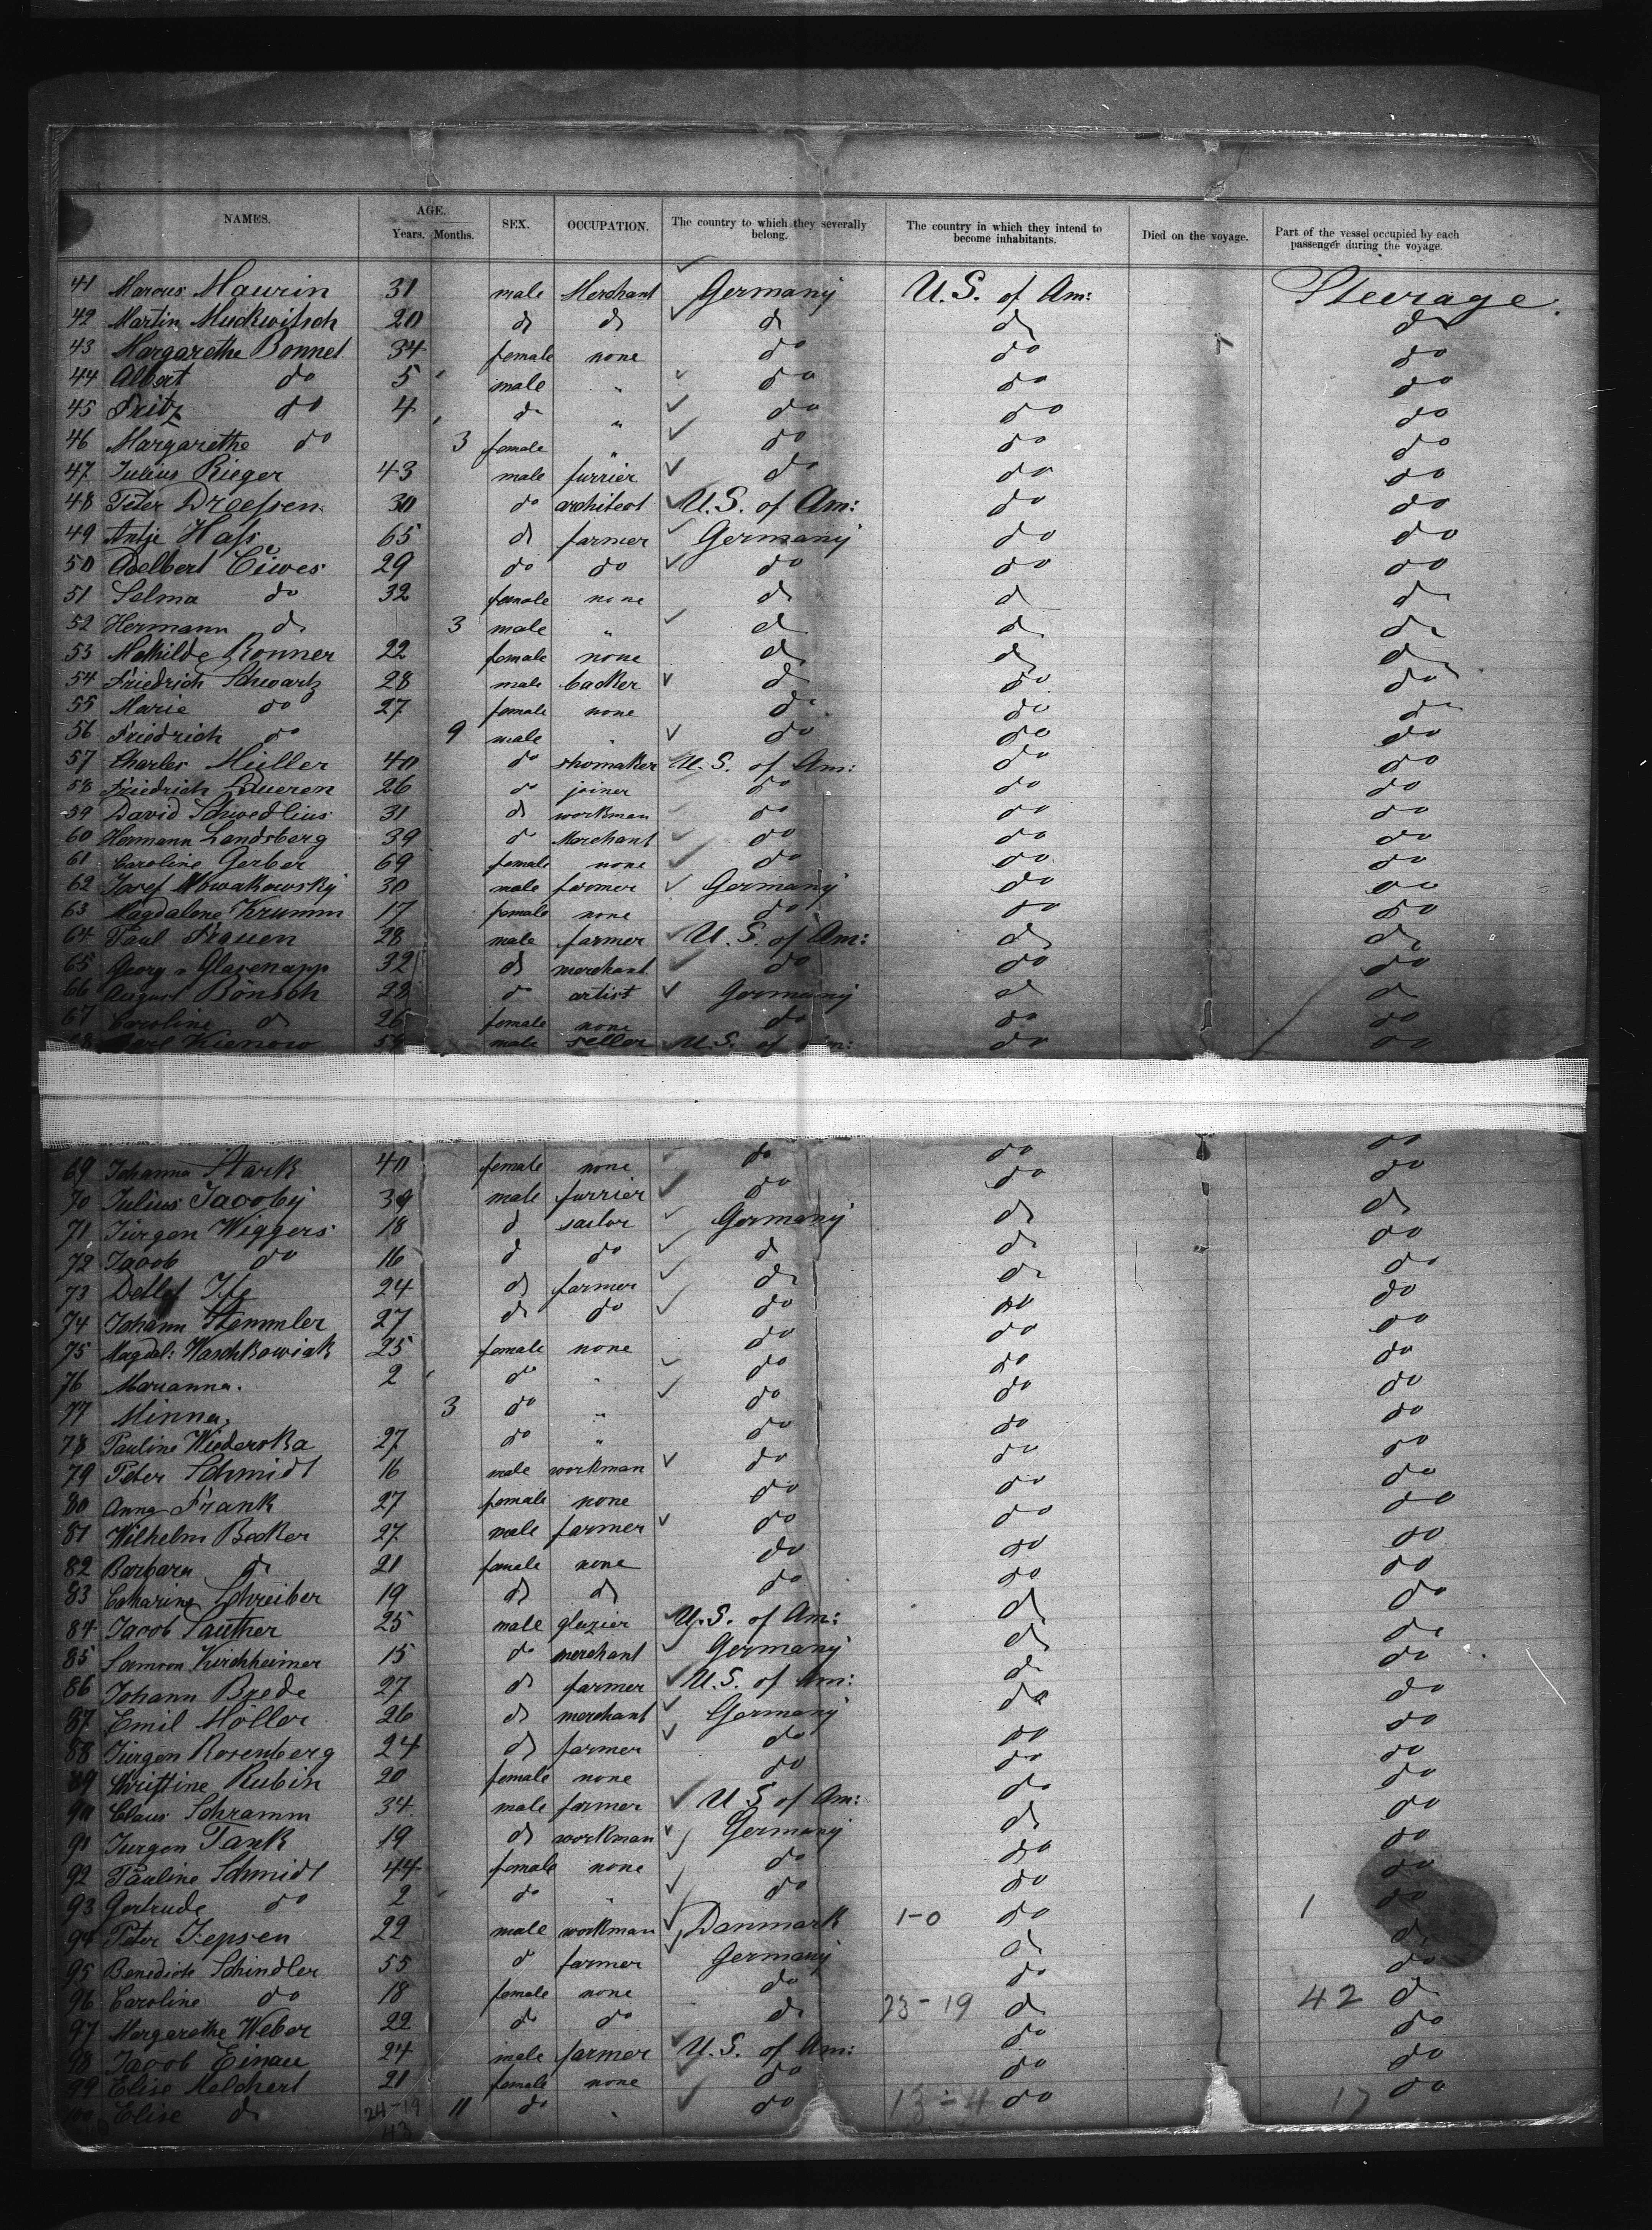 NAMES. AGE. Years. Months. SEX. OCCUPATION. The country to which they severally belong. The country in which they intend to become inhabitants. Died on the voyage. Part of the vessel occupied by each passenger during the voyage.
41 Marcus Maurin 31 male Merchant Germany U.S. of Am: Steerage.
42 Martin Muckwitsch 20 do do do do do
43 Margarethe Bonnet 34 female none do do do
44 Albert do 5 male " do do do
45 Fritz do 4 do " do do do
46 Margarethe do 3 female " do do do
47 Julius Rieger 43 male furrier do do do
48 Peter Dreessen 30 do architect U.S. of Am: do do
49 Antje Hass 65 do farmer Germany do do
50 Adelbert 29 do do do do do
51 Selma do 32 female none do do do
52 Hermann do 3 male " do do do
53 Mathilde Ronner 22 female none do do do
54 Friedrich Schwartz 28 male backer do do do
55 Marie do 27 female none do do do
56 Friedrich do 9 male " do do do
57 Charles Müller 40 do shomaker U.S. of Am: do do
58 Friedrich Lueren 26 do joiner do do do
59 David Schwedlius 31 do workman do do do
60 Hermann Landsberg 39 do Merchant do do do
61 Caroline Gerber 69 female none do do do
62 Josef Nowakowsky 30 male farmer Germany do do
63 Magdalene Krumm 17 female none do do do
64 Paul Frauen 28 male farmer U.S. of Am: do do
65 Georg v Glasenapp 32 do merchant do do do
66 August Bönsch 28 do artist Germany do do
67 Caroline do 26 female none do do do
68 Carl Kienow male seller U.S. of Am: do do
69 Johanna Stark 40 female none do do do
70 Julius Jacoby 39 male furrier do do do
71 Jürgen Wiggers 18 do sailor Germany do do
72 Jacob do 16 do do do do do
73 Detlef 24 do farmer do do do
74 Johann Stemmler 27 do do do do do
75 Magdal: Waschkowiak 25 female none do do do
76 Marianna. 2 do " do do do
77 Minna, 3 do " do do do
78 Pauline Wiederska 27 do " do do do
79 Peter Schmidt 16 male workman do do do
80 Anna Frank 27 female none do do do
81 Wilhelm Becker 27 male farmer do do do
82 Barbara do 21 female none do do do
83 Catharine Schreiber 19 do do do do do
84 Jacob Sauther 25 male glazier U.S. of Am: do do
85 Samson Kirchheimer 15 do merchant Germany do do
86 Johann Brede 27 do farmer U.S. of Am: do do
87 Emil Möller 26 do merchant Germany do do
88 Jürgen Rosenberg 24 do farmer do do do
89 Christine Rubin 20 female none do do do
90 Claus Schramm 34 male farmer U S of Am: do do
91 Jurgen Tank 19 do workman Germany do do
92 Pauline Schmidt 44 female none do do do
93 Gertrude do 2 do " do do do
94 Peter Jepsen 22 male workman Danmark 1-0 do 1 do
95 Benedicte Schindler 55 do farmer Germany do do
96 Caroline do 18 female none do do do
97 Margarethe Weber 22 do do do 23-19 do 42 do
98 Jacob Einau 24 male farmer U.S. of Am: do do
99 Elise Melchert 21 female none do do do
100 Elise do 11 do " do 13-4 do 17 do
24-19
43